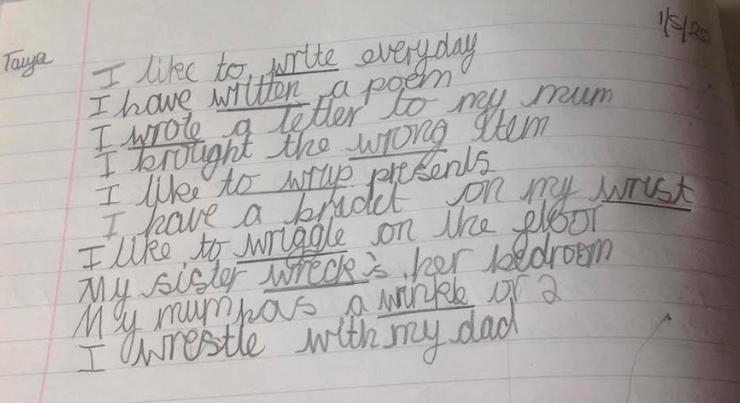 1/5/20
Tanya
I like to write everyday
I have written a poem
I wrote a letter to my mum
I brought the wrong item
I like to wrap presents
I have a braclet on my wrist
I like to wriggle on the floor
My sister wreck's her bedroom
My mum has a wrinkle or 2
I wrestle with my dad